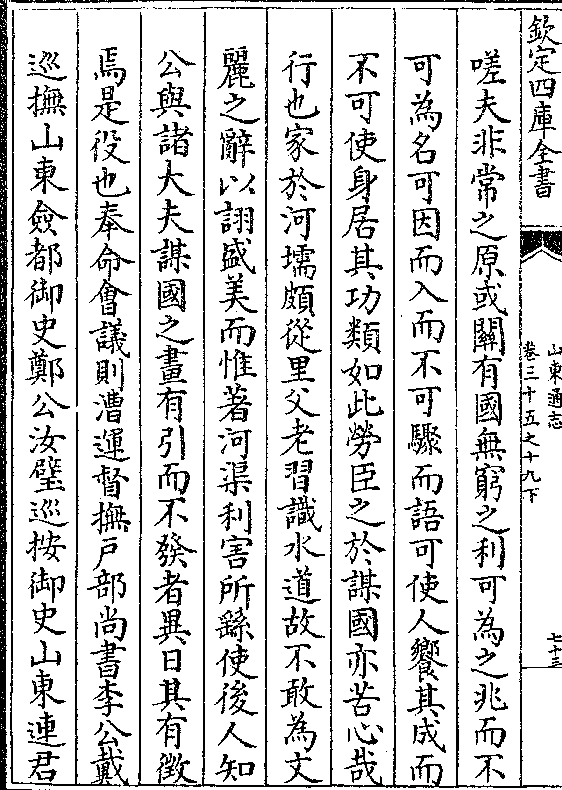 欽定四庫全書
山東通志
卷三十五之十九下
七十三
嗟夫非常之原或關有國無窮之利可為之兆而不
可為名可因而入而不可驟而語可使人饗其成而
不可使身居其功類如此勞臣之於謀國亦苦心哉
行也家於河壖頗從里父老習識水道故不敢為文
麗之辭以詡盛美而惟著河渠利害所繇使後人知
公與諸大夫謀國之畫有引而不發者異日其有徵
焉是役也奉命會議則漕運督撫戶部尚書李公戴
巡撫山東僉都御史鄭公汝璧巡按御史山東連君